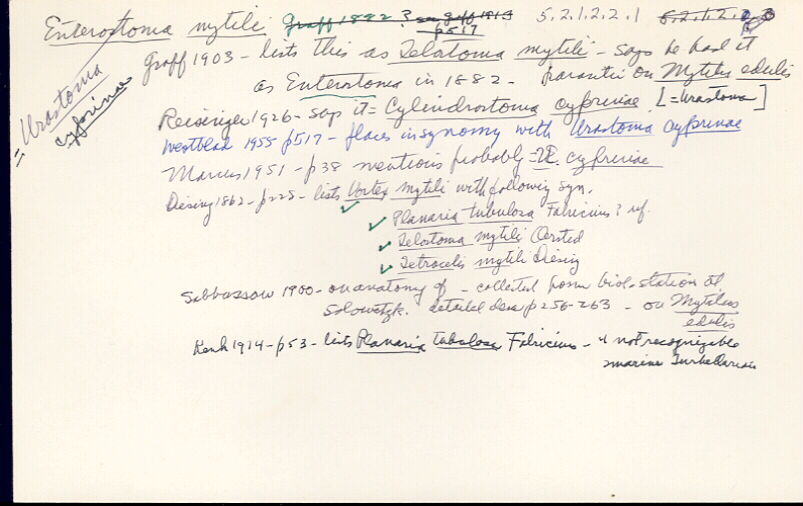 Enterostoma mytili Graff 1882 ? see Graff 1913 p517 5.2.1.2.2.1 5.2.1.2.
= Urastoma cyprinae
Graff 1903 - lists this as Telostoma mytili - says he had it
as Enterostoma in 1882 - parasitic on Mytilus edulis
Reisinger 1926 - says it = Cylindrostoma cyprinae [= Urastoma]
Westblad 1955 p517 - places in synomy with Urastoma cyprinae
Marcus 1951 - p38 mentions probably = U. cyprinae
Diesing 1862 - p228 - lists Vortex mytili with following syn.
✓ Planaria tubulosa Fabricius? ref.
✓ Telostoma mytili Oersted
✓ Tetracelis mytili Diesing
Sabbussow 1900 - on anatomy of - collected from biol. station at
Solowetzk. detailed desc p256-263 - on Mytilus
edulis
1914 - p53 - lists Planaria tubulosa Fabricius - not recognizable
marine Turbellarian